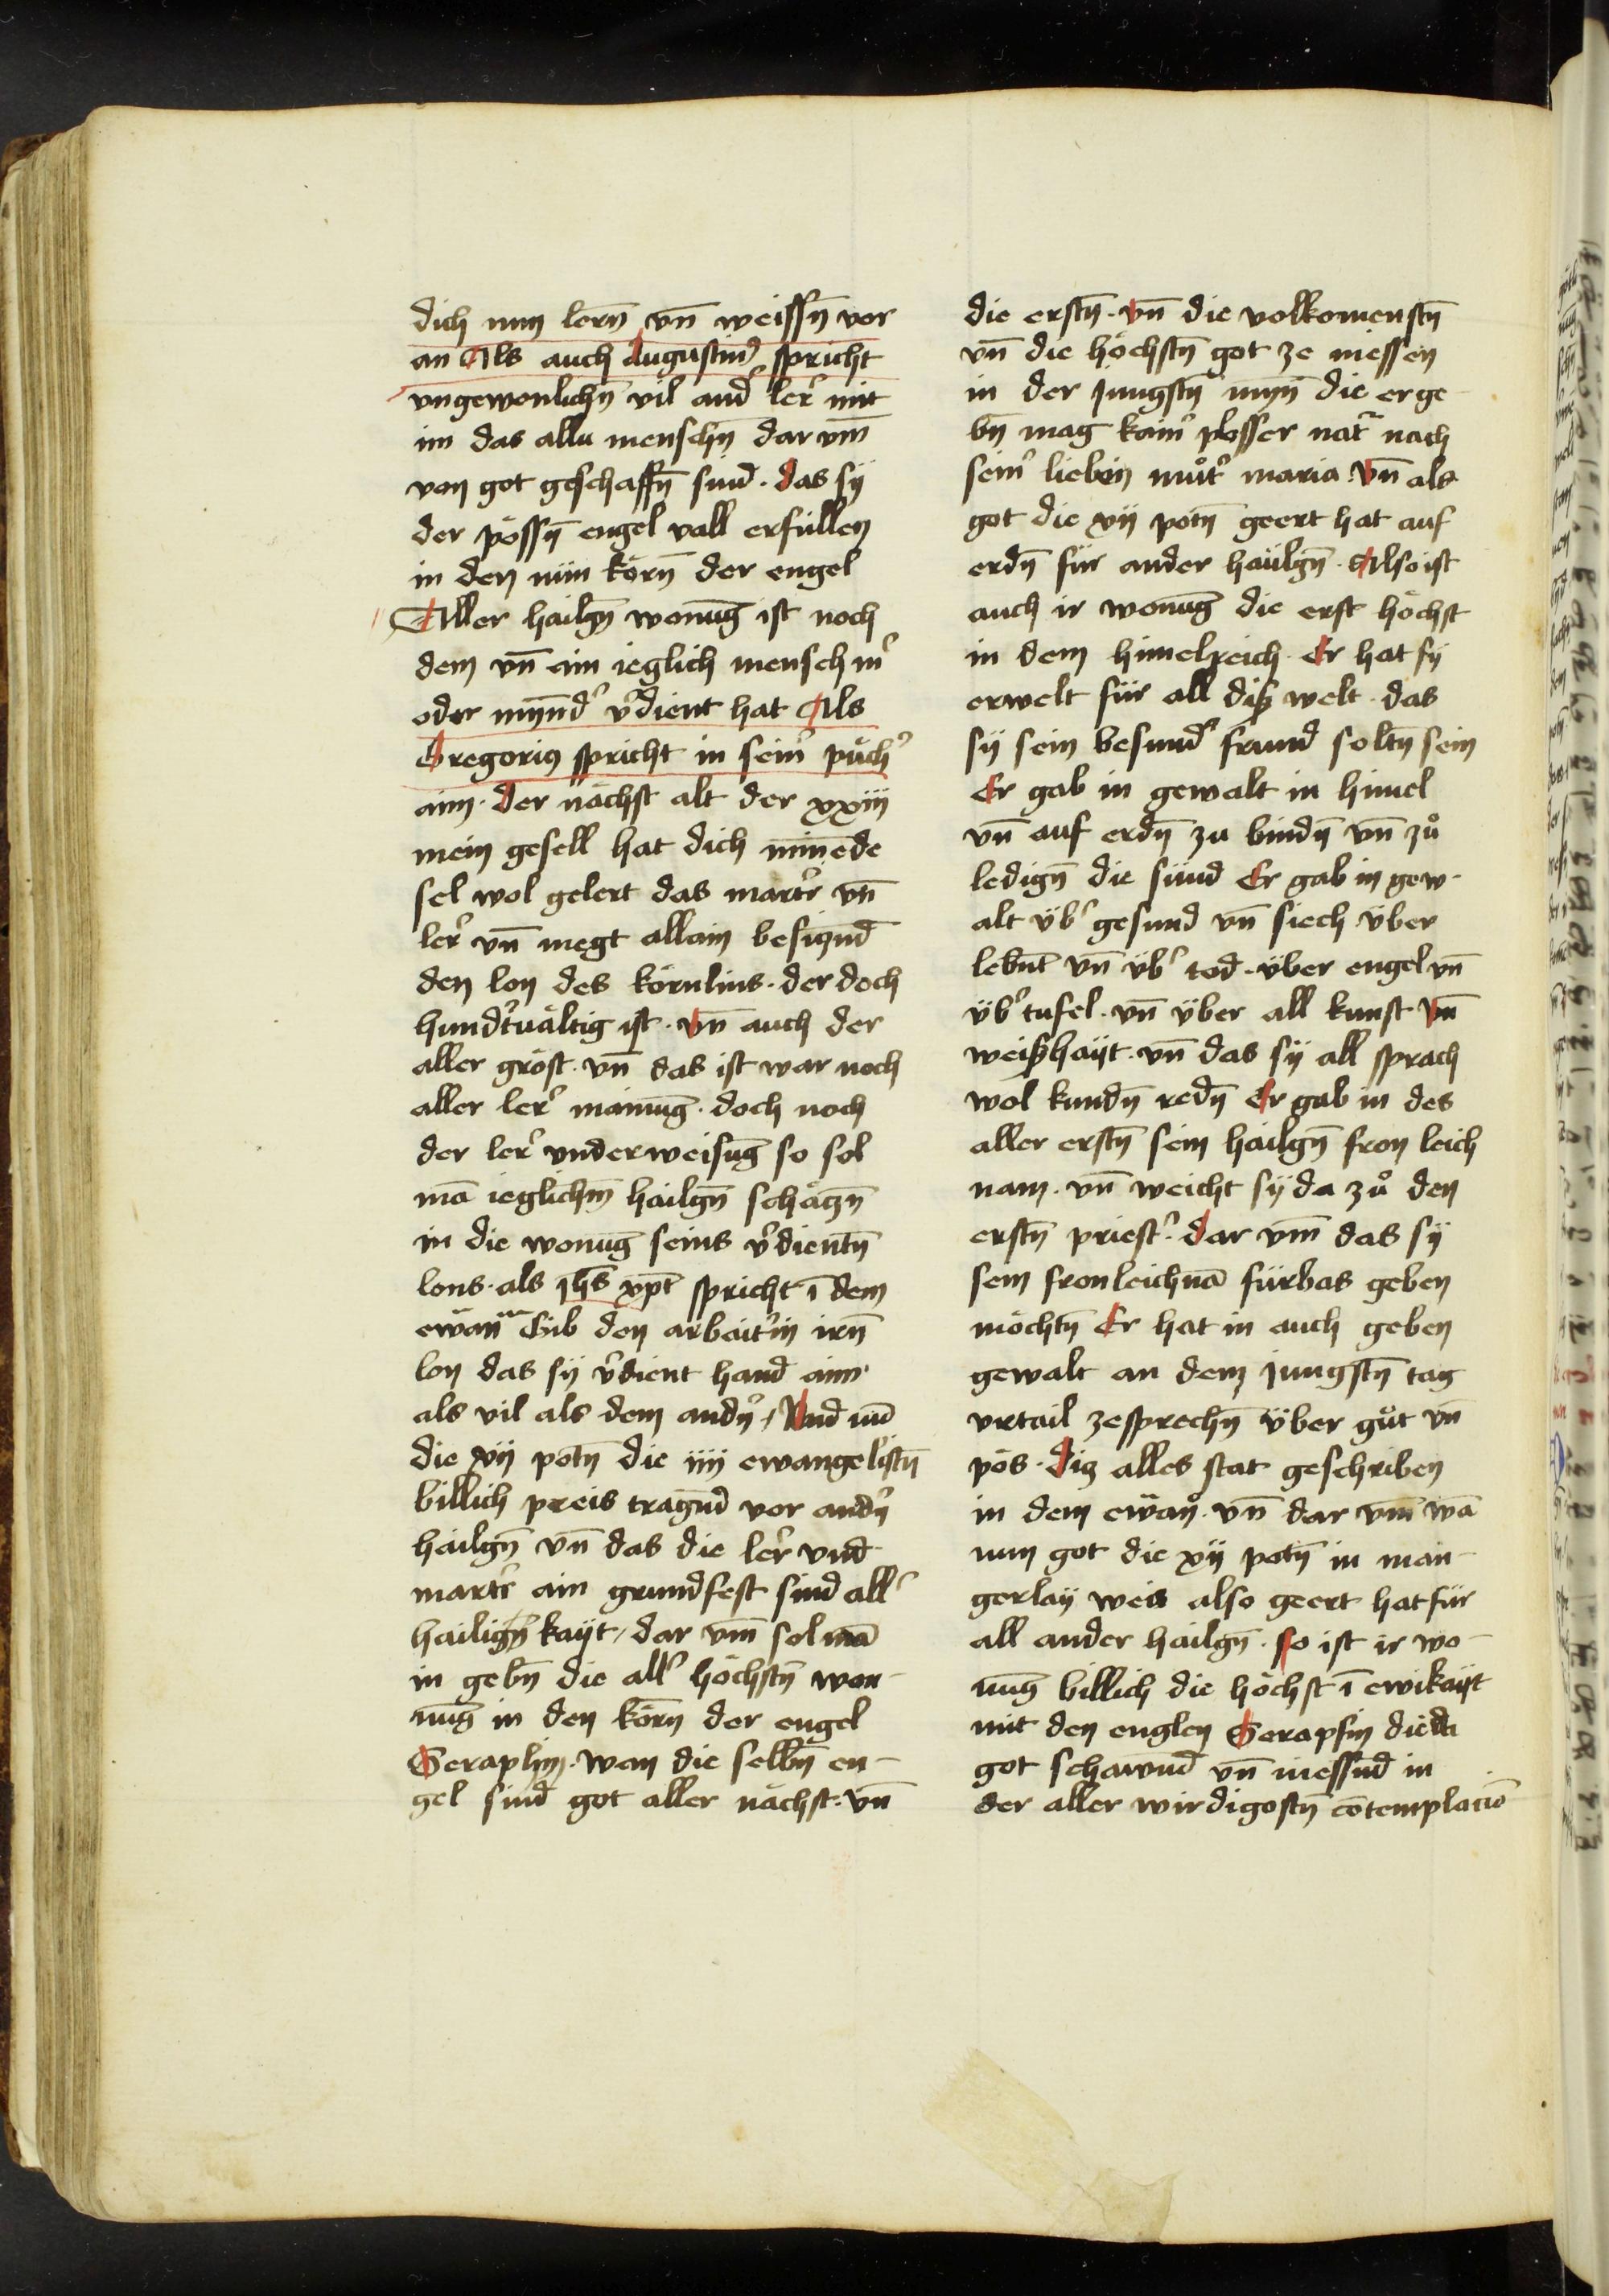 dich nun lern̄ vn̄ weissn̄ vor
an Als auch Augustin9 spricht
vngewonlichn̄ vil and' ler' mit
im das allu menschn̄ dar vm̄
von got geschaffn̄ sind · das sÿ
der pössn̄ engel vall erfüllen
in den nün körn̄ der engel
Aller hailgn̄ wonūg ist noch
dem vn̄ ain ieglich mensch m'
oder mynnd' v'dient hat Als
Gregorius spricht in seim' půch'
ainn · der nächst alt der xxiiij
mein gesell hat dich minēde
sel wol gelert das martr' vn̄
ler' vn̄ megt allain besiznd
den lon des körnlins · der doch
hundt'uältig ist · vn̄ auch der
aller gröst · vn̄ das ist war noch
aller ler' mainūg · doch noch
der ler' vnderweisūg so sol
mā ieglichm̄ hailgn̄ schäczn̄
in die wonūg seins v'dientn̄
lons · als jh̄s xp̄c spricht ī dem
ewan̄ Gib den arbeit'in irn̄
lon das sÿ v'dient hand aim'
als vil als dem andn̄ / Vnd nū
die xij potn̄ die iiij ewangelistn̄
billich preis tragnd vor andn̄
hailgn̄ vn̄ das die ler' vnd
martr' ain grundfest sind all'
hailign̄ kayt / dar vm̄ sol mā
in gebn̄ die all' höchstn̄ won-
nūg in den körn̄ der engel
Seraphin · wan die selbn̄ en-
gel sind got aller nächst · vn̄
die erstn̄ · vn̄ die volkomenstn̄
vn̄ die höchstn̄ got ze niessen
in der jungstn̄ mynn̄ die erge
bn̄ mag kaim' plosser nat'r nach
seim' liebin můt' maria · Vn̄ als
got die xij potn̄ geert hat auf
erdn̄ für ander hailgn̄ · Also ist
auch ir wonūg die erst höchst
in dem himelreich · Er hat sÿ
erwelt für all diß welt · das
sÿ sein besund' frund soltn̄ sein
Er gab in gewalt in himel
vn̄ auf erdn̄ zu bindn̄ vn̄ zů
ledign̄ die sünd Er gab in gew-
alt üb' gesund vn̄ siech über
lebnt̄ vn̄ üb' tod · über engel vn̄
üb' tufel · vn̄ über all kunst vn̄
weißhaÿt · vn̄ das sÿ all sprach
wol kundn̄ redn̄ Er gab in des
aller erstn̄ sein hailgn̄ fron leich
nam · vn̄ weicht sÿ da zů den
erstn̄ priest' · dar vm̄ das sÿ
sein fronleichnā fürbas geben
möchtn̄ Er hat in auch geben
gewalt an dem jungstn̄ tag
vrtail zesprechn̄ über gůt vn̄
pös · diz alles stat geschriben
in dem ewan̄ · vn̄ dar vm̄ wā
nun got die xij potn̄ in man-
gerlaÿ weis also geert hat für
all ander hailgn̄ · so ist ir wo-
nūg billich die höchst ī ewikaÿt
mit den englen Seraphin die da
got schawnd vn̄ niessnd in
der aller wirdigostn̄ cōtemplaciō